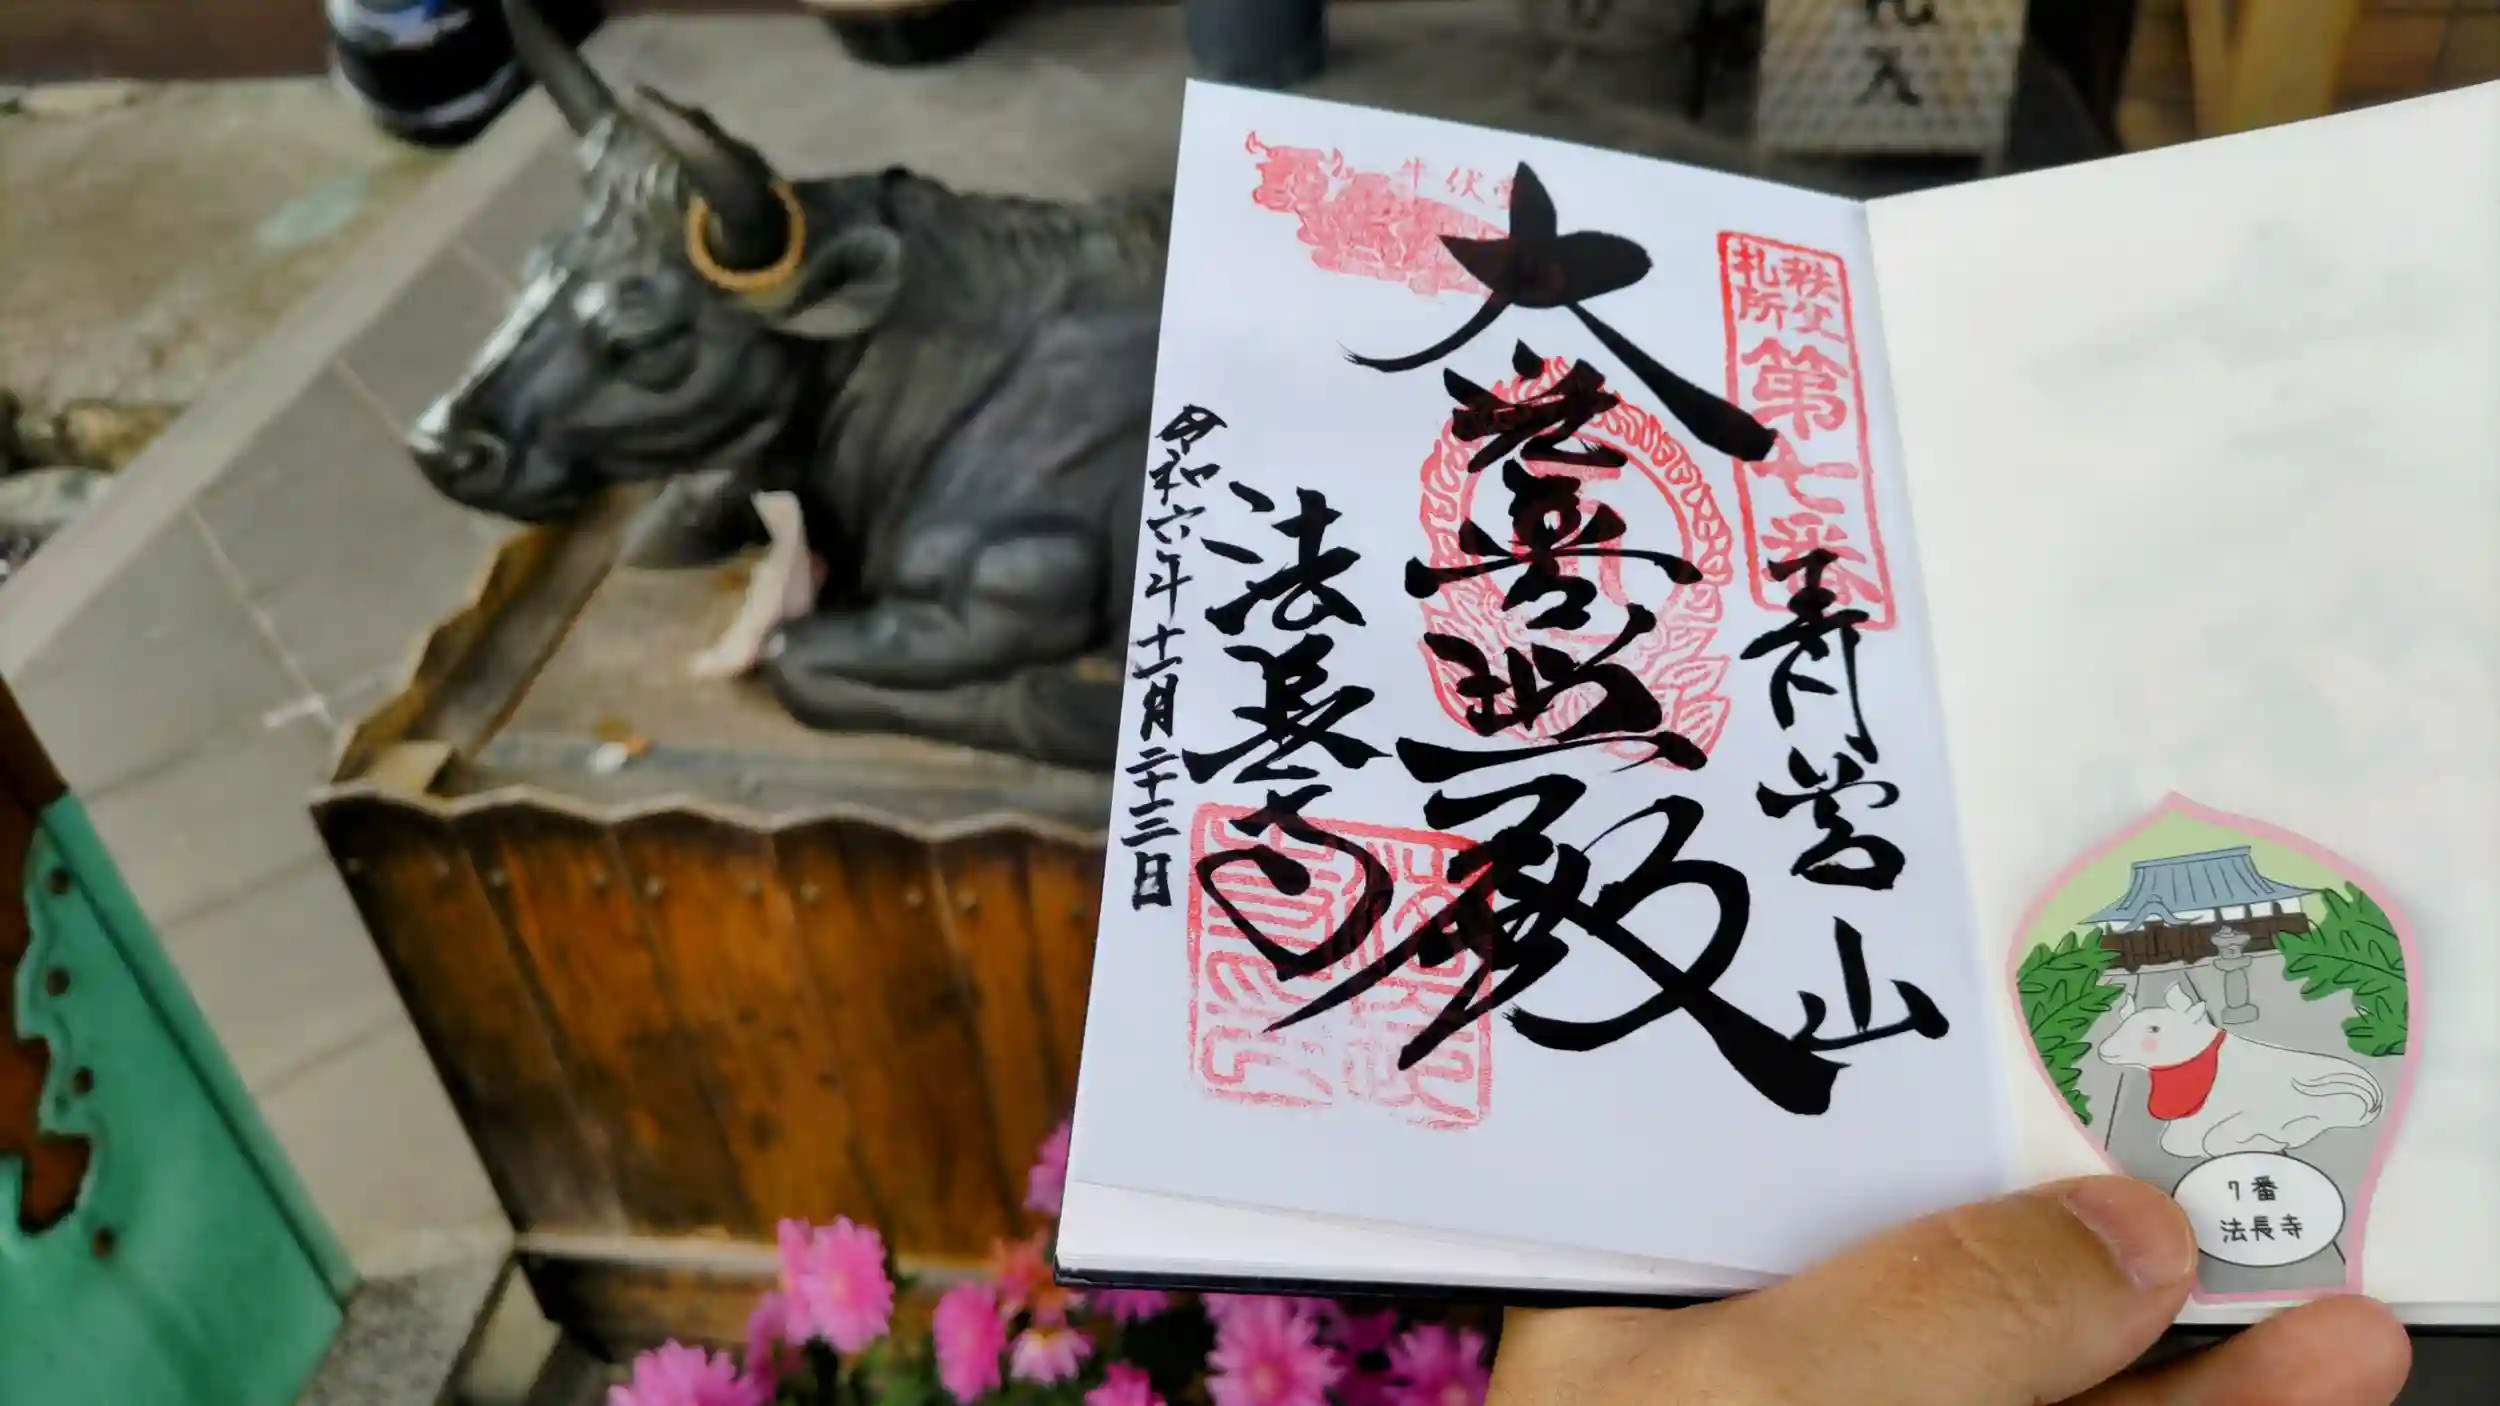 秩父
札所
第七番
青苔山
牛伏
大光普照殿
法長寺
令和六年十一月二十三日
7番
法長寺
入